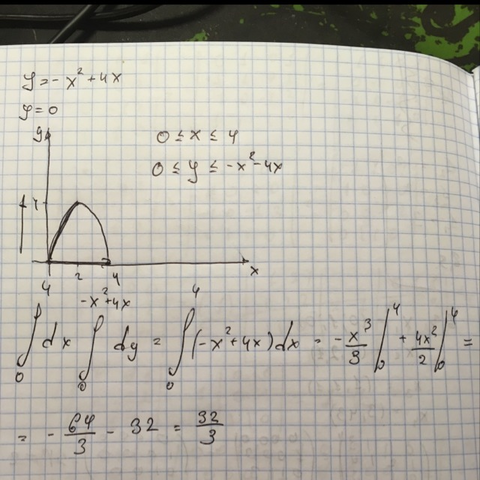 y = -x² + 4x
y = 0
0 ≤ x ≤ 4
0 ≤ y ≤ -x² - 4x
y
4
2 4 x
∫₀⁴ dx ∫₀^(-x²+4x) dy = ∫₀⁴ (-x² + 4x) dx = -x³/3 |₀⁴ + 4x²/2 |₀⁴ =
= -64/3 - 32 = 32/3